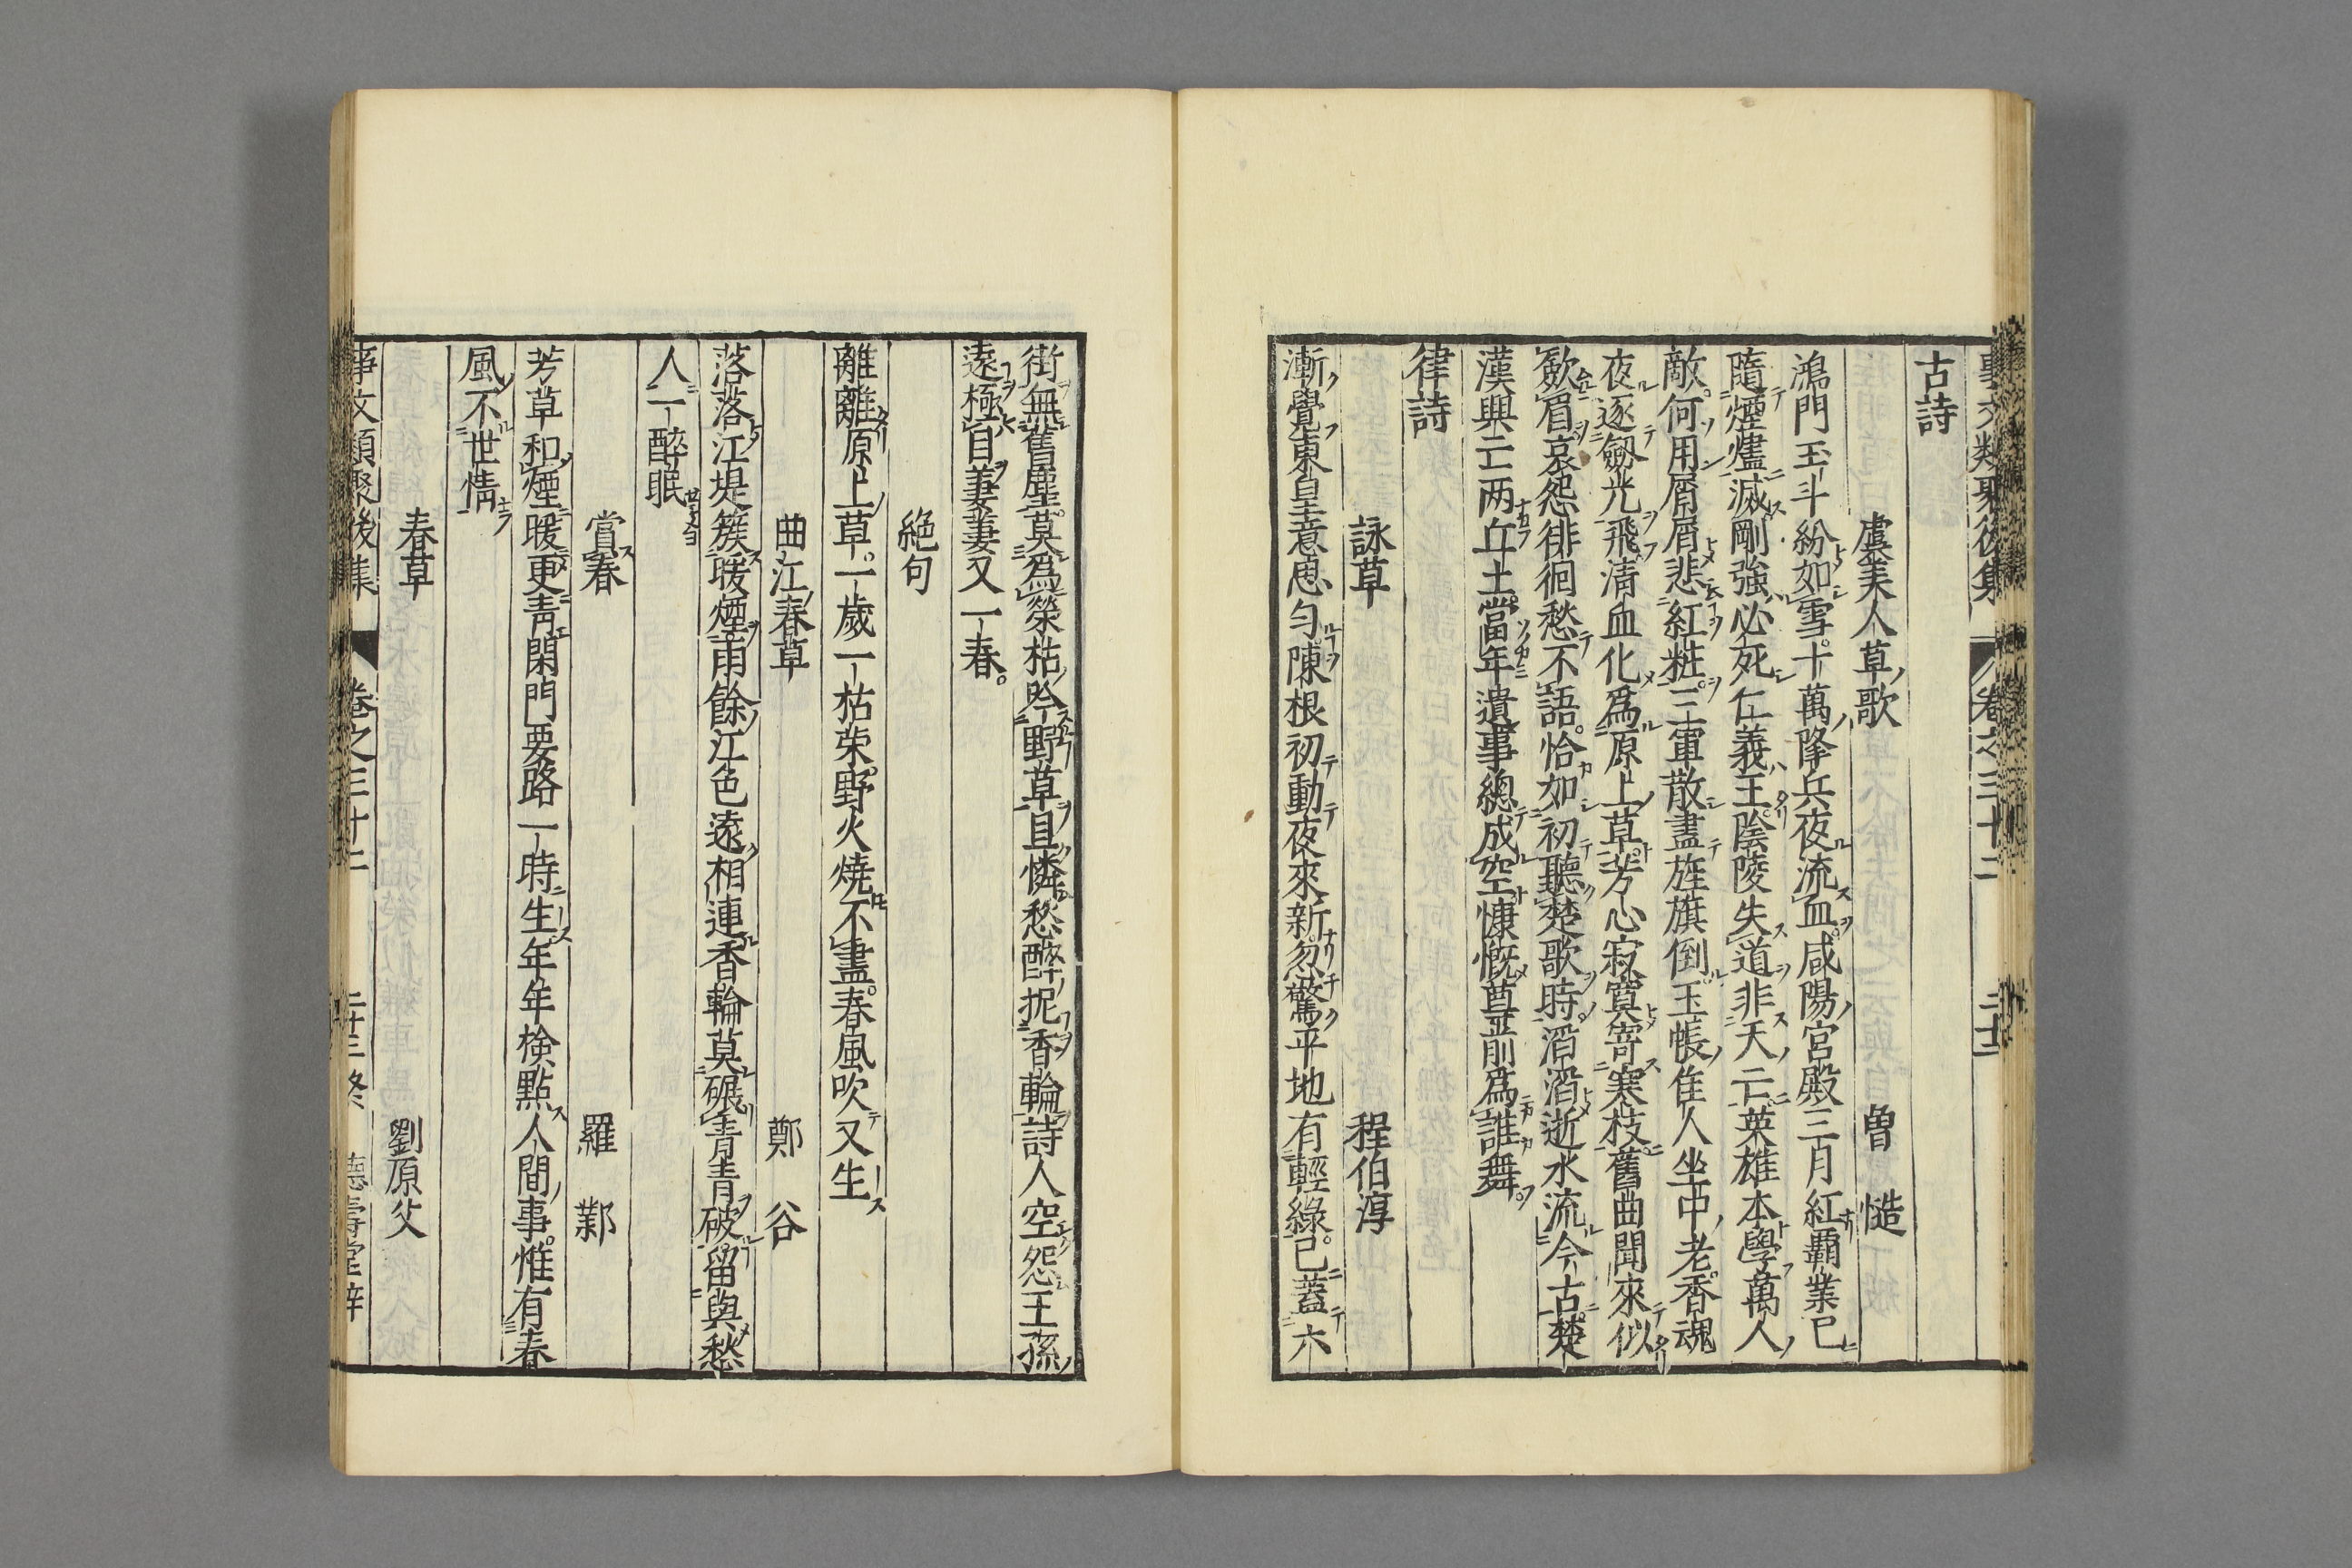 事文類聚後集 卷之三十二 二十三
古詩
虞美人草歌 曾 慥
鴻門玉斗紛如雪十萬降兵夜流血咸陽宮殿三月紅霸業已
隨煙燼滅剛強必死仁義王陰陵失道非天亡英雄本學萬人
敵何用屑屑悲紅粧三軍散盡旌旗倒玉帳隹人坐中老香魂
夜逐劔光飛清血化爲原上草芳心寂寞寄寒枝舊曲聞來似
歛眉哀怨徘徊愁不語恰如初聽楚歌時滔滔逝水流今古楚
漢興亡两丘土當年遺事總成空慷慨尊前爲誰舞
律詩
詠草 程伯淳
漸覺東皇意思勻陳根初動夜來新忽驚平地有輕綠已蓋六
街無舊塵莫爲榮枯吟野草且憐愁醉把香輪詩人空怨王孫
遠極目萋萋又一春
絕句
離離原上草一歲一枯荣野火燒不盡春風吹又生
曲江春草 鄭 谷
落落江堤簇暖煙雨餘江色遠相連香輪莫碾青青破留與愁
人一醉眠
賞春 羅 鄴
芳草和煙暖更青閑門要路一時生年年檢點人間事惟有春
風不世情
春草 劉原父
事文類聚後集 卷之三十二 二十三終 德壽堂梓